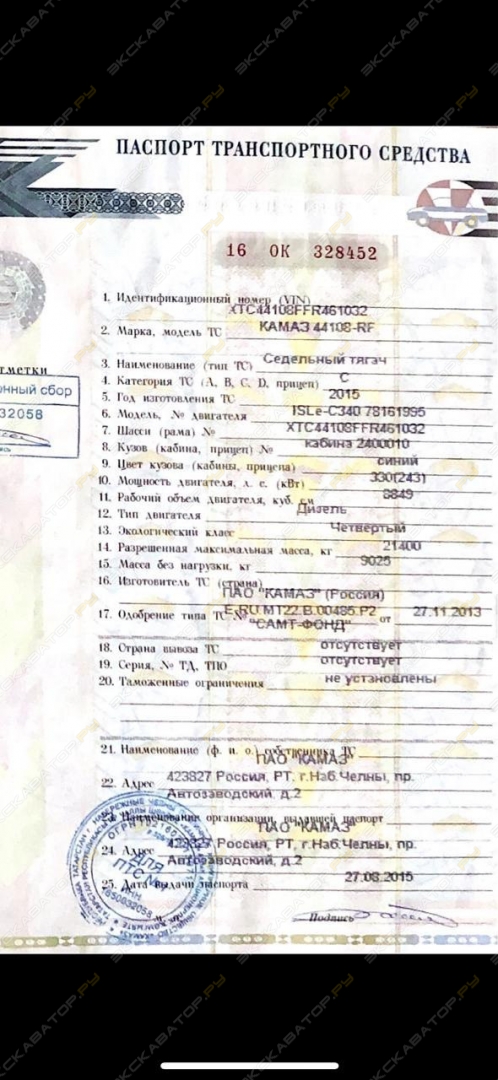 ПАСПОРТ ТРАНСПОРТНОГО СРЕДСТВА
16 ОК 328452
1. Идентификационный номер (VIN) XTC44108FFR461032
2. Марка, модель ТС КАМАЗ 44108-RF
3. Наименование (тип ТС) Седельный тягач
4. Категория ТС (A, B, C, D, прицеп) C
5. Год изготовления ТС 2015
6. Модель, № двигателя ISLe-C340 78161995
7. Шасси (рама) № XTC44108FFR461032
8. Кузов (кабина, прицеп) № кабина 2400010
9. Цвет кузова (кабины, прицепа) синий
10. Мощность двигателя, л. с. (кВт) 330(243)
11. Рабочий объем двигателя, куб. см 8849
12. Тип двигателя Дизель
13. Экологический класс Четвертый
14. Разрешенная максимальная масса, кг 21400
15. Масса без нагрузки, кг 9025
16. Изготовитель ТС (страна) ПАО "КАМАЗ" (Россия)
17. Одобрение типа ТС № E-RU.MT22.B.00485.P2 от 27.11.2013
"САМТ-ФОНД"
18. Страна вывоза ТС отсутствует
19. Серия, № ТД, ТПО отсутствует
20. Таможенные ограничения не установлены
21. Наименование (ф. и. о.) собственника ТС ПАО "КАМАЗ"
22. Адрес 423827 Россия, РТ, г.Наб.Челны, пр.
Автозаводский, д.2
23. Наименование организации, выдавшей паспорт
ПАО "КАМАЗ"
24. Адрес 423827 Россия, РТ, г.Наб.Челны, пр.
Автозаводский, д.2
25. Дата выдачи паспорта 27.08.2015
Подпись
ДЛЯ
ПТС
метки
нный сбор
32058
ЭКСКАВАТОР.РУ